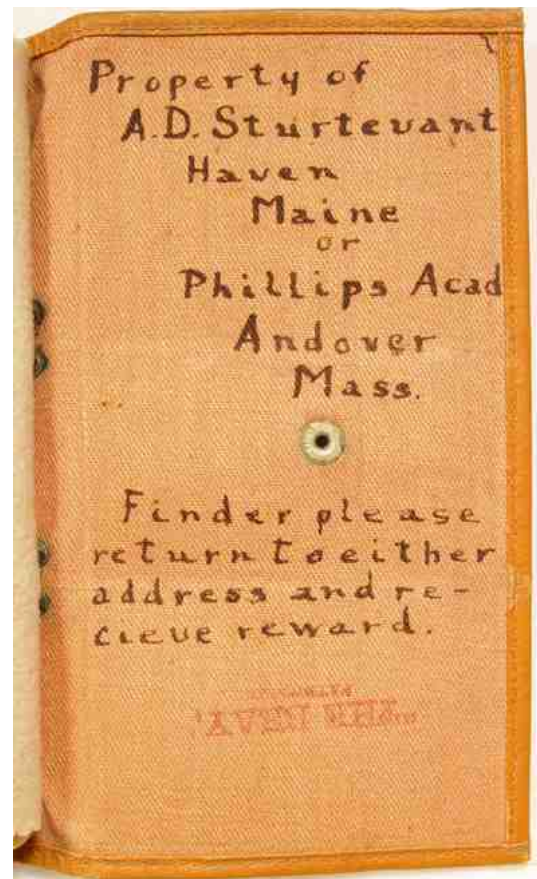 Property of
A.D. Sturtevant
Haven
Maine
or
Phillips Acad
Andover
Mass.
Finder please
return to either
address and re-
cieve reward.